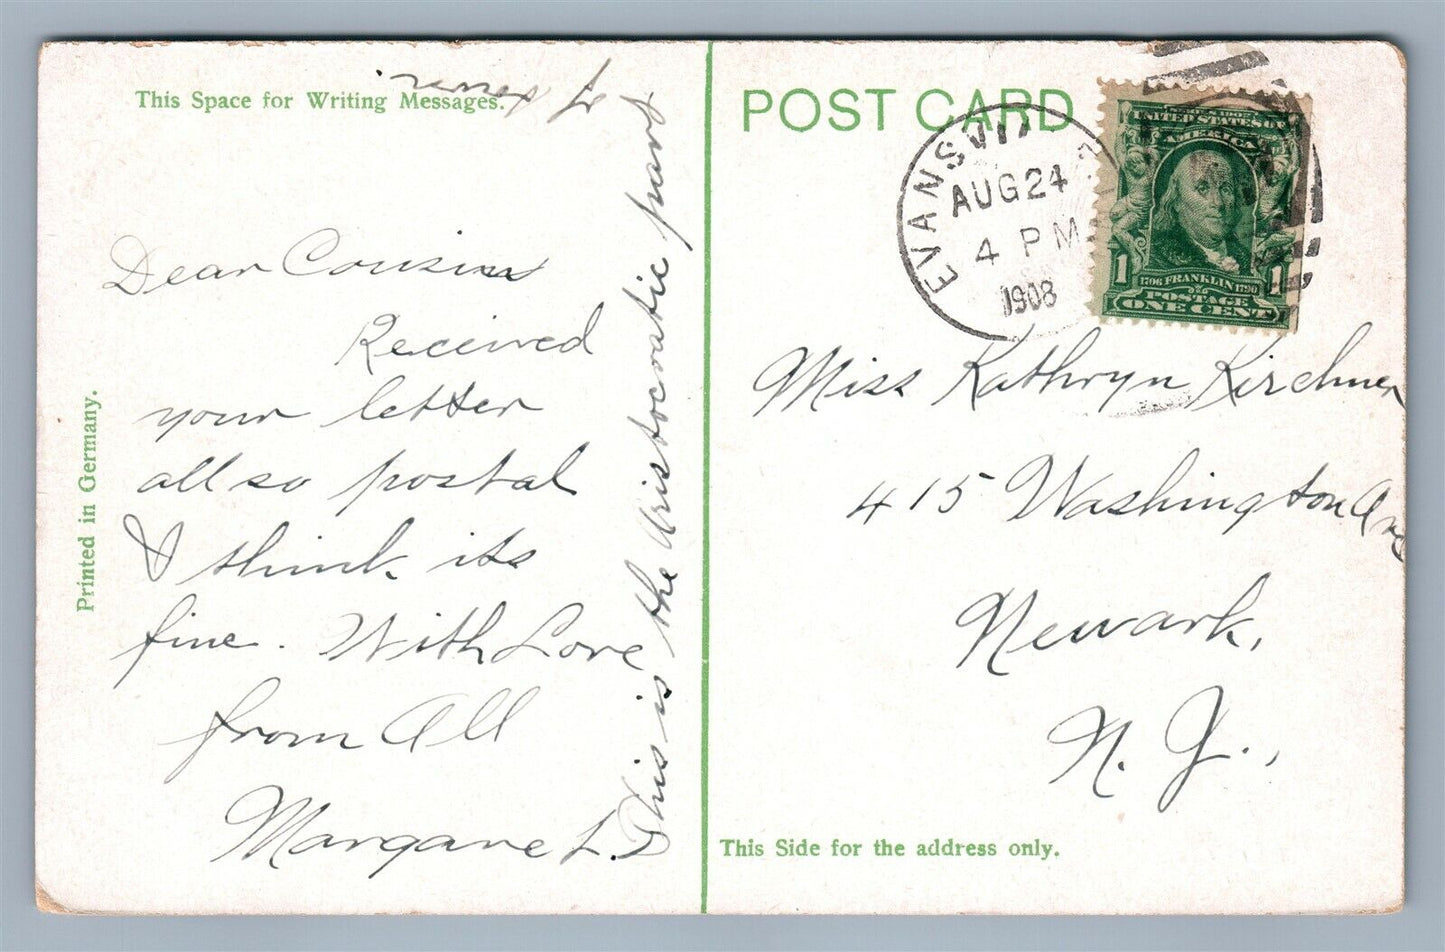 This Space for Writing Messages.
Dear Cousin
Received
your letter
all so postal
I think its
fine. With Love
from All
Margaret.
This is the Aristocratic part
of town.
Printed in Germany.
POST CARD
EVANSVI
AUG 24
4 PM
1908
UNITED STATES OF
AMERICA
1 1706 FRANKLIN 1790 1
POSTAGE
ONE CENT
Miss Kathryn Kirchner
415 Washington Ave
Newark,
N. J.,
This Side for the address only.